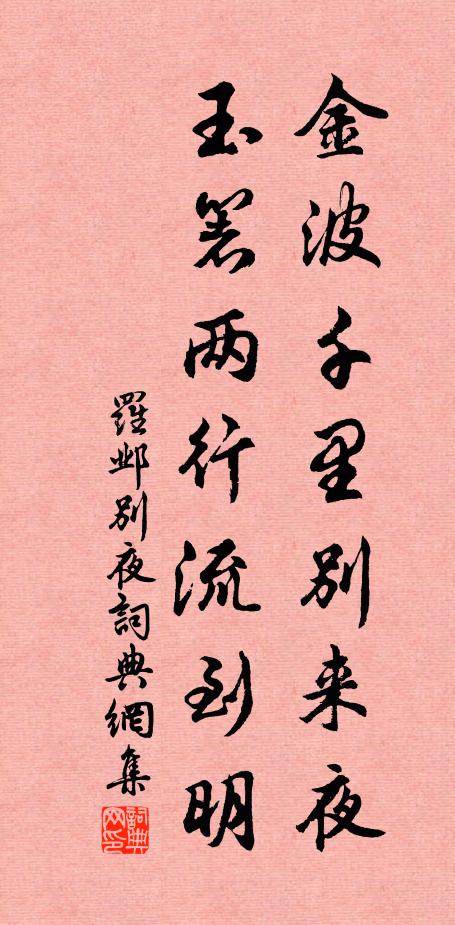 金波千里别来夜
玉箸两行流到明
羅邺别夜詞典網集
詞典网印